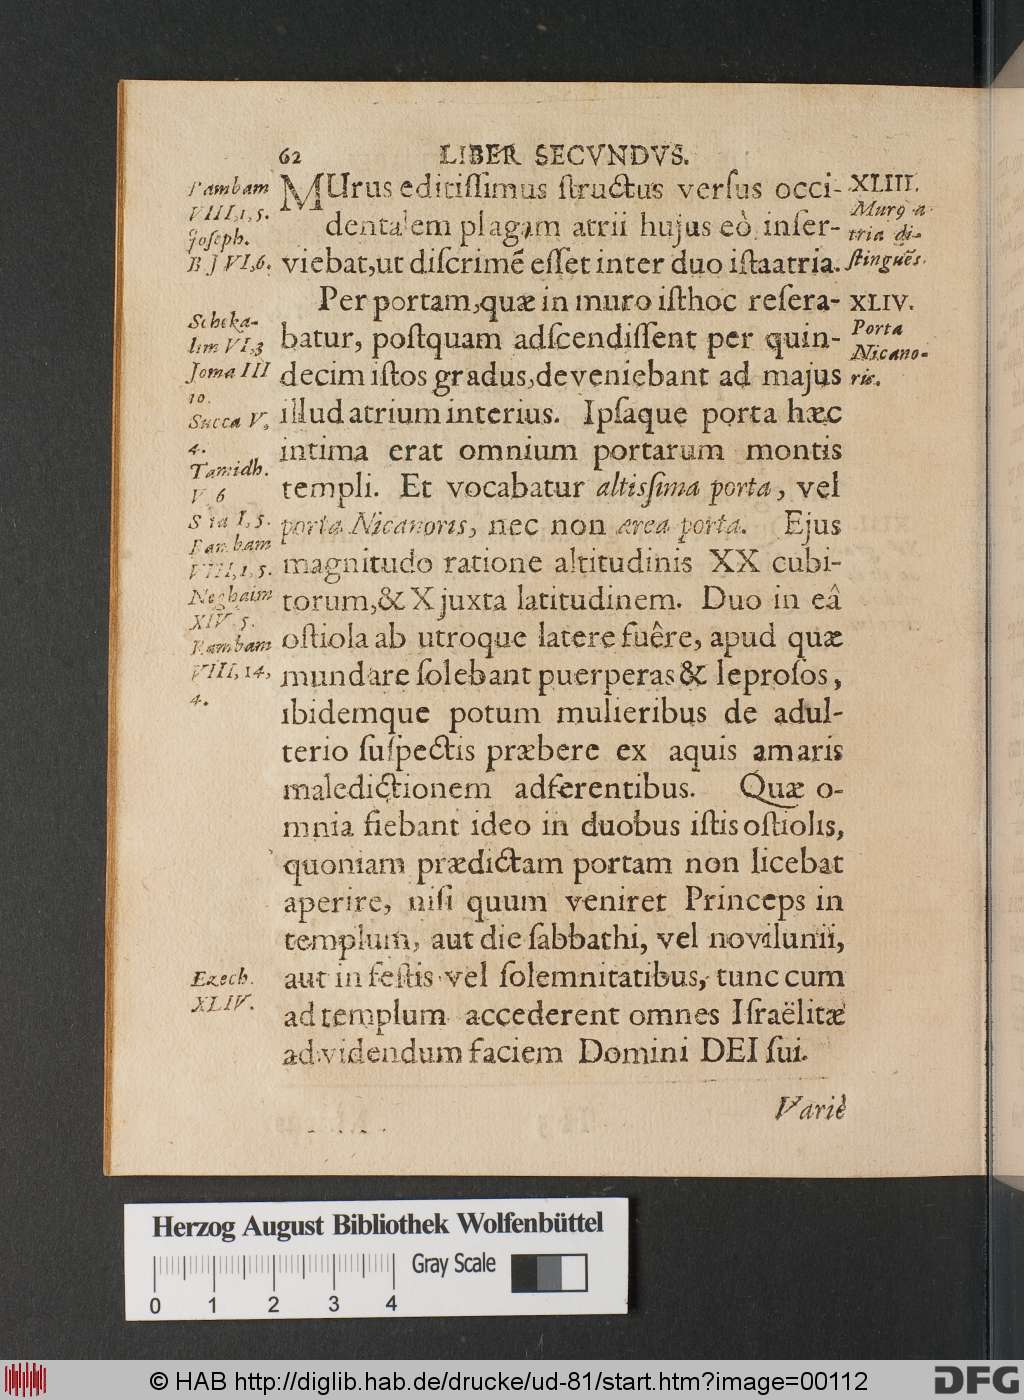 62 LIBER SECVNDVS.
MUrus editiſſimus ſtructus verſus occi-
dentalem plagam atrii hujus eò inſer-
viebat,ut diſcrimẽ eſſet inter duo iſta atria.
Per portam,quæ in muro iſthoc reſera-
batur, poſtquam adſcendiſſent per quin-
decim iſtos gradus,deveniebant ad majus
illud atrium interius. Ipſaque porta hæc
intima erat omnium portarum montis
templi. Et vocabatur altiſſima porta, vel
porta Nicanoris, nec non ærea porta. Ejus
magnitudo ratione altitudinis XX cubi-
torum,& X juxta latitudinem. Duo in eâ
oſtiola ab utroque latere fuêre, apud quæ
mundare ſolebant puerperas & leproſos,
ibidemque potum mulieribus de adul-
terio ſuſpectis præbere ex aquis amaris
maledictionem adferentibus. Quæ o-
mnia fiebant ideo in duobus iſtis oſtiolis,
quoniam prædictam portam non licebat
aperire, niſi quum veniret Princeps in
templum, aut die ſabbathi, vel novilunii,
aut in feſtis vel ſolemnitatibus, tunc cum
ad templum accederent omnes Iſraëlitæ
ad videndum faciem Domini DEI ſui.
Variè
Rambam
VIII,1,5.
Joſeph.
B J VI,6.
Scheka-
lim VI,3
Joma III
10.
Succa V,
4.
Tamidh.
V 6
I, 5.
Rambam
VIII,1,5.
Neghaim
XIV 5.
Rambam
VIII, 14,
4.
Ezech.
XLIV.
XLIII.
Murꝰ a-
tria di-
ſtinguẽs.
XLIV.
Porta
Nicano-
ris.
Herzog August Bibliothek Wolfenbüttel
Gray Scale
0 1 2 3 4
© HAB http://diglib.hab.de/drucke/ud-81/start.htm?image=00112
DFG